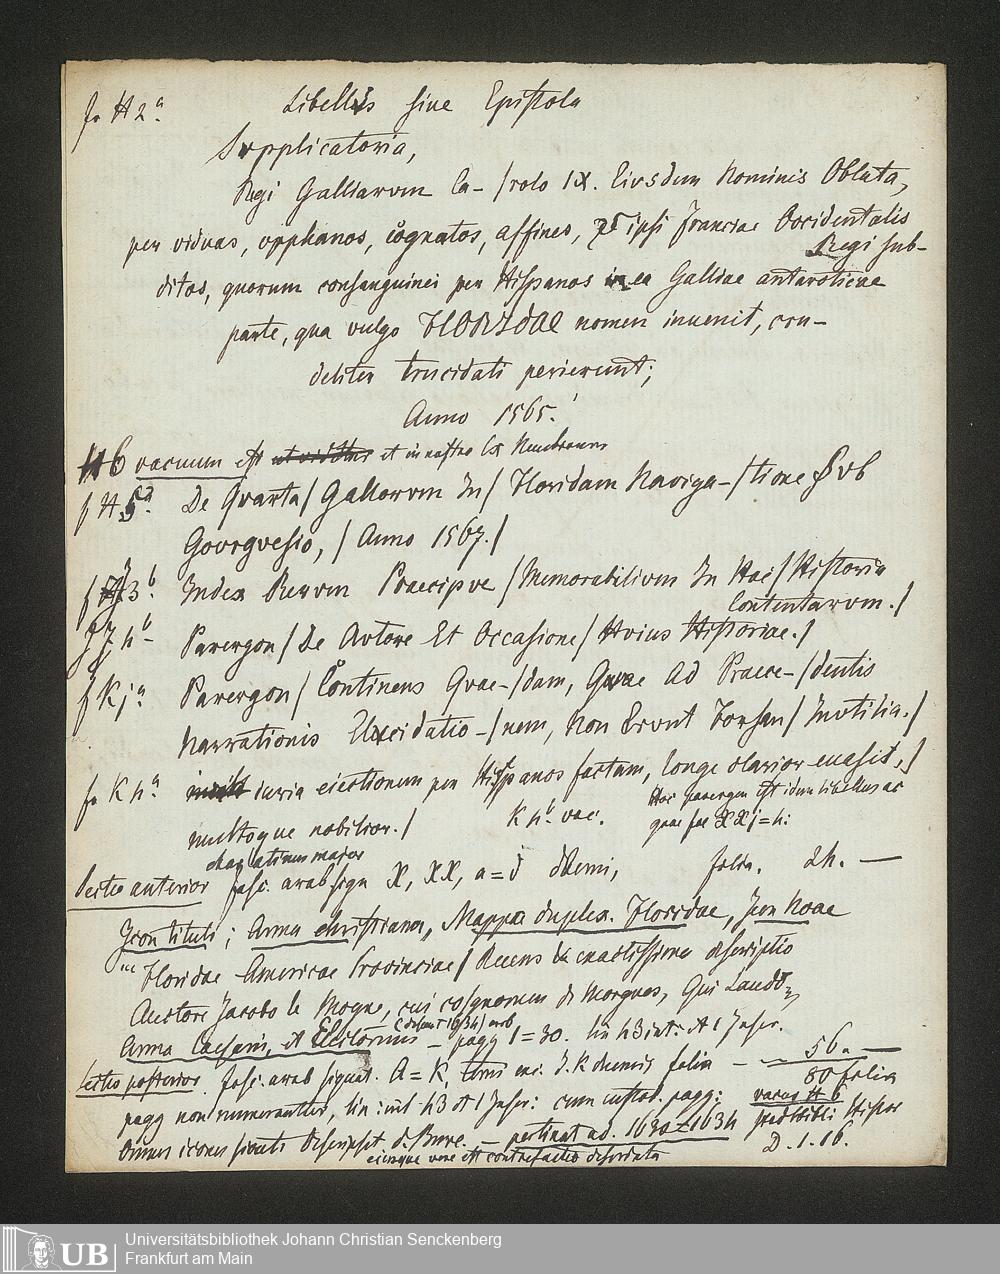 f. H 2 a. Libellus sive Epistola
Supplicatoria,
Regi Galliarum Ca-/rolo IX. Eiusdem Nominis Oblata,
per viduas, orphanos, cognatos, affines, et ipsi Franciae Occidentalis
Regi sub-
ditos, quorum consanguinei per Hispanos in ea Galliae antarcticae
parte, qua vulgo FLORIDAE nomen invenit, cru-
deliter trucidati perierunt;
Anno 1565.
H6 vacuum est et in nostro Ex Membraneum
f H 5 a. De Qvarta/ Gallorvm In/ Floridam Naviga-/tione Svb
Govrgvesio, / Anno 1567./
f J 3 b. Index Rervm Praecipve / Memorabilivm In Hac/ Historia
Contentarvm./
f J 4 b. Parergon/ De Avtore Et Occasione/ Hvius Historiae./
f K j. a Parergon/ Continens Qvae-/dam, Quae Ad Praece-/dentis
Narrationis Elucidatio-/nem, Non Ervnt Forsan/ Invtilia./
f. K 4 a. iuria eiectionem per Hispanos factam, longe clarior evasit,/
multoque nobilior./ K 4 b. vac. Hoc parergon est idem libellus ac
char. latinus major
Sectio anterior fasc. arab sign X, XX, a=d folia. 24. —
Icon tituli; Arma christiana, Mappa duplex. Floridae, Icon Noae
"" Floridae Americae Provinciae/ Recens & exactissima descriptio
Auctore Jacobo le Moyne, cui cognomen de Morgues, Qui Laudõ
Arma Caesaris, et Electorum — pagg 1=30. lin 43 int: et 1 Inscr.
Sectio posterior fasc. arab signat. A=K, folia — 56. —
80 folia
pagg non numerantur, lin: int 43 et 1 Inscr: cum custod. pagg: vacuo H 6
Omnes icones sicuti descripsit d. Bure. — pertinet ad. 1630=1634
eiusque vere est contrefactio
D. 1. 16.
Universitätsbibliothek Johann Christian Senckenberg
UB Frankfurt am Main